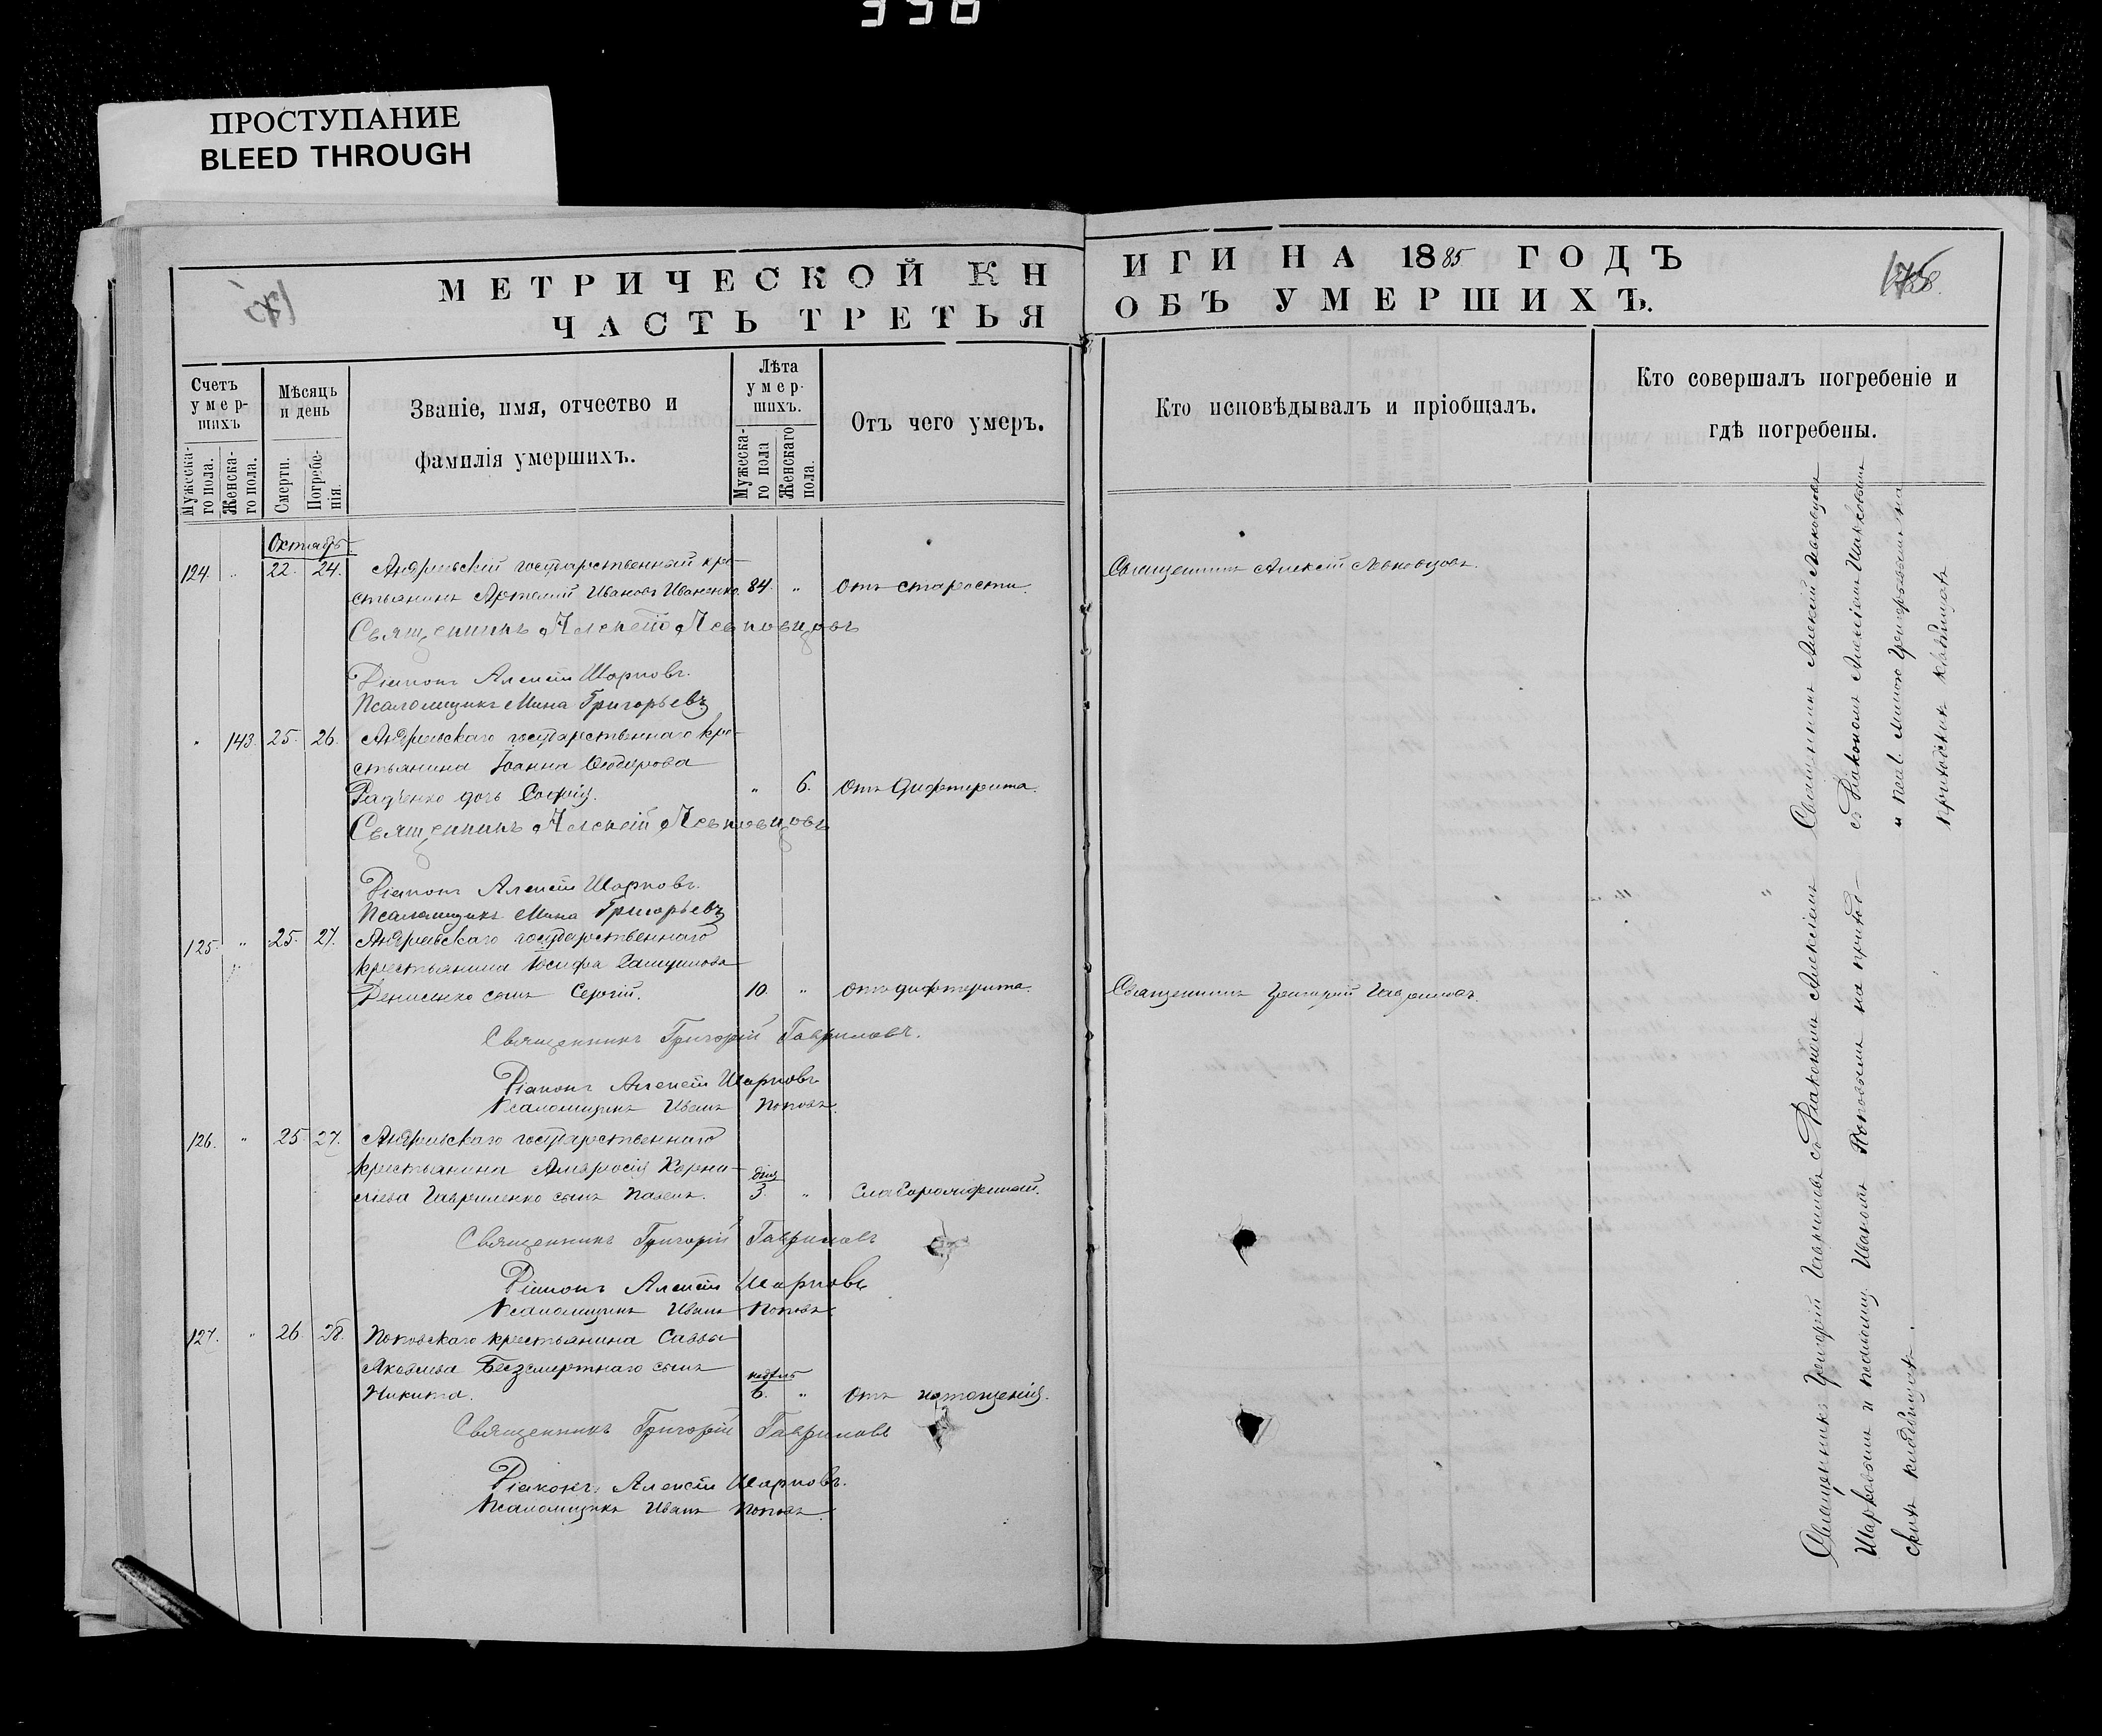 398
ПРОСТУПАНИЕ
BLEED THROUGH
МЕТРИЧЕСКОЙ КН
ЧАСТЬ ТРЕТЬЯ
Счетъ умер-шихъ
Мужеска-го пола.
Женска-го пола.
Мѣсяцъ и день
Смерти.
Погребе-нія.
Званіе, имя, отчество и
фамилія умершихъ.
Лѣта умер-шихъ.
Мужеска-го пола
Женскаго пола.
Отъ чего умеръ.
Октябрь
124. " 22. 24. Андреевскій государственный кре-
стьянинъ Артемій Ивановъ Иваненко. 84. " Отъ старости.
Священникъ Алексѣй Левковцовъ
Діаконъ Алексѣй Шарковъ.
Псаломщикъ Мина Григорьевъ
" 143. 25. 26. Андреевскаго государственнаго кре-
стьянина Іоанна Ѳедорова
Радченко дочь Софія. " 6. Отъ дифтерита.
Священникъ Алексѣй Левковцовъ
Діаконъ Алексѣй Шарковъ.
Псаломщикъ Мина Григорьевъ
125. " 25. 27. Андреевскаго государственнаго
крестьянина Іосифа
Денисенко сынъ Сергій. 10. " Отъ дифтерита.
Священникъ Григорій Гавриловъ.
Діаконъ Алексѣй Шарковъ
Псаломщикъ Иванъ Поповъ.
126. " 25. 27. Андреевскаго государственнаго
крестьянина Амвросія Корни-
ліева Гавриленко сынъ Павелъ. дня 3. "
Священникъ Григорій Гавриловъ
Діаконъ Алексѣй Шарковъ
Псаломщикъ Иванъ Поповъ
127. " 26. 28. Поповскаго крестьянина Саввы
Яковлева Безсмертнаго сынъ
Никита. недѣль 6. " Отъ истощенія.
Священникъ Григорій Гавриловъ
Діаконъ Алексѣй Шарковъ.
Псаломщикъ Иванъ Поповъ
ИГИ НА 1885 ГОДЪ
ОБЪ УМЕРШИХЪ.
Кто исповѣдывалъ и пріобщалъ.
Кто совершалъ погребеніе и
гдѣ погребены.
Священникъ Алексѣй Левковцовъ.
Священникъ Григорій Гавриловъ.
Священникъ Алексѣй Левковцовъ
съ Діакономъ Алексіемъ Шарковымъ
и псал. Миною Григорьевымъ на
приходскихъ кладбищахъ
Священникъ Григорій Гавриловъ съ Діакономъ Алексіемъ
Шарковымъ и псаломщ. Иваномъ Поповымъ на приход-
скихъ кладбищахъ.